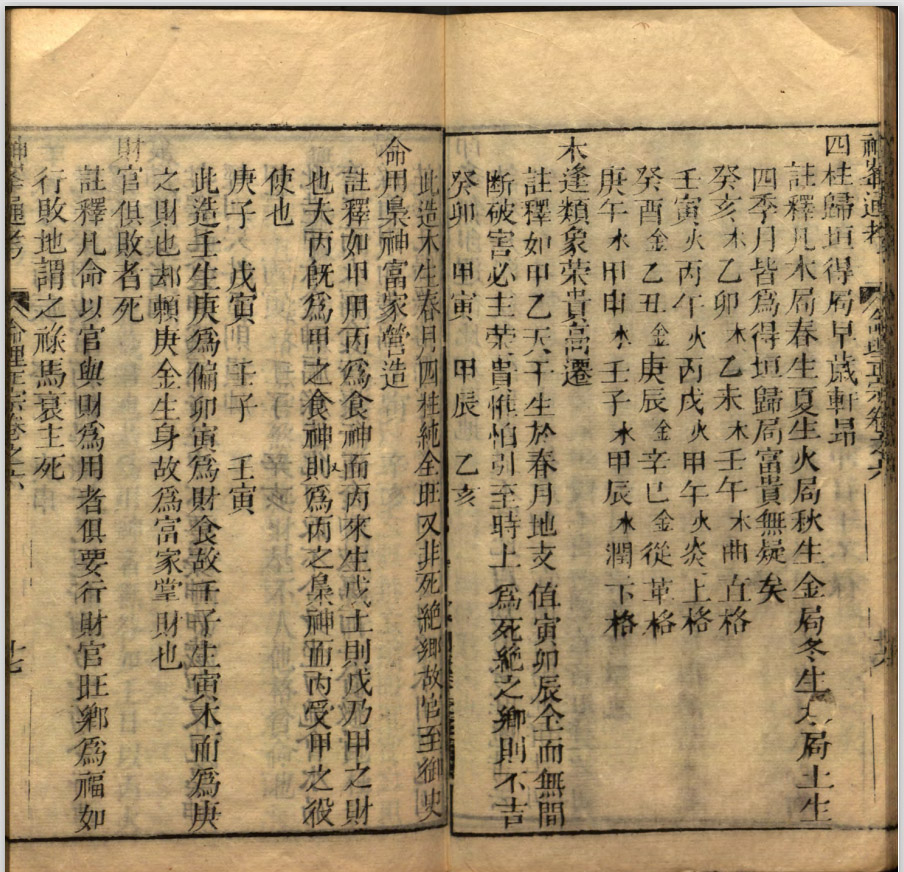 神峯通考 命理正宗卷之六
四柱歸垣得局早歲軒昂
註釋凡木局春生夏生火局秋生金局冬生水局土生
四季月皆爲得垣歸局富貴無疑矣
癸亥木乙卯木乙未木壬午木曲直格
壬寅火丙午火丙戌火甲午火炎上格
癸酉金乙丑金庚辰金辛巳金從革格
庚午水甲申水壬子水甲辰水潤下格
木逢類象荣貴高遷
註釋如甲乙天干生於春月地支值寅卯辰全而無間
断破害必主荣貴惟怕引至時上爲死絶之鄉則不吉
癸卯 甲寅 甲辰 乙亥
此造木生春月四柱純全旺又非死絶鄉故官至御史
命用梟神富家營造
註釋如甲用丙爲食神而丙來生戊土則戊乃甲之財
也夫丙旣爲甲之食神則爲丙之梟神而丙受甲之役
使也
庚子 戊寅 壬子 壬寅
此造壬生庚爲偏卯寅爲財食故壬子生寅木而爲庚
之財也却賴庚金生身故爲富家掌財也
財官俱敗者死
註釋凡命以官與財爲用者俱要行財官旺鄉爲福如
行敗地謂之祿馬衰主死
神峯通考 命理正宗卷之六 廿七